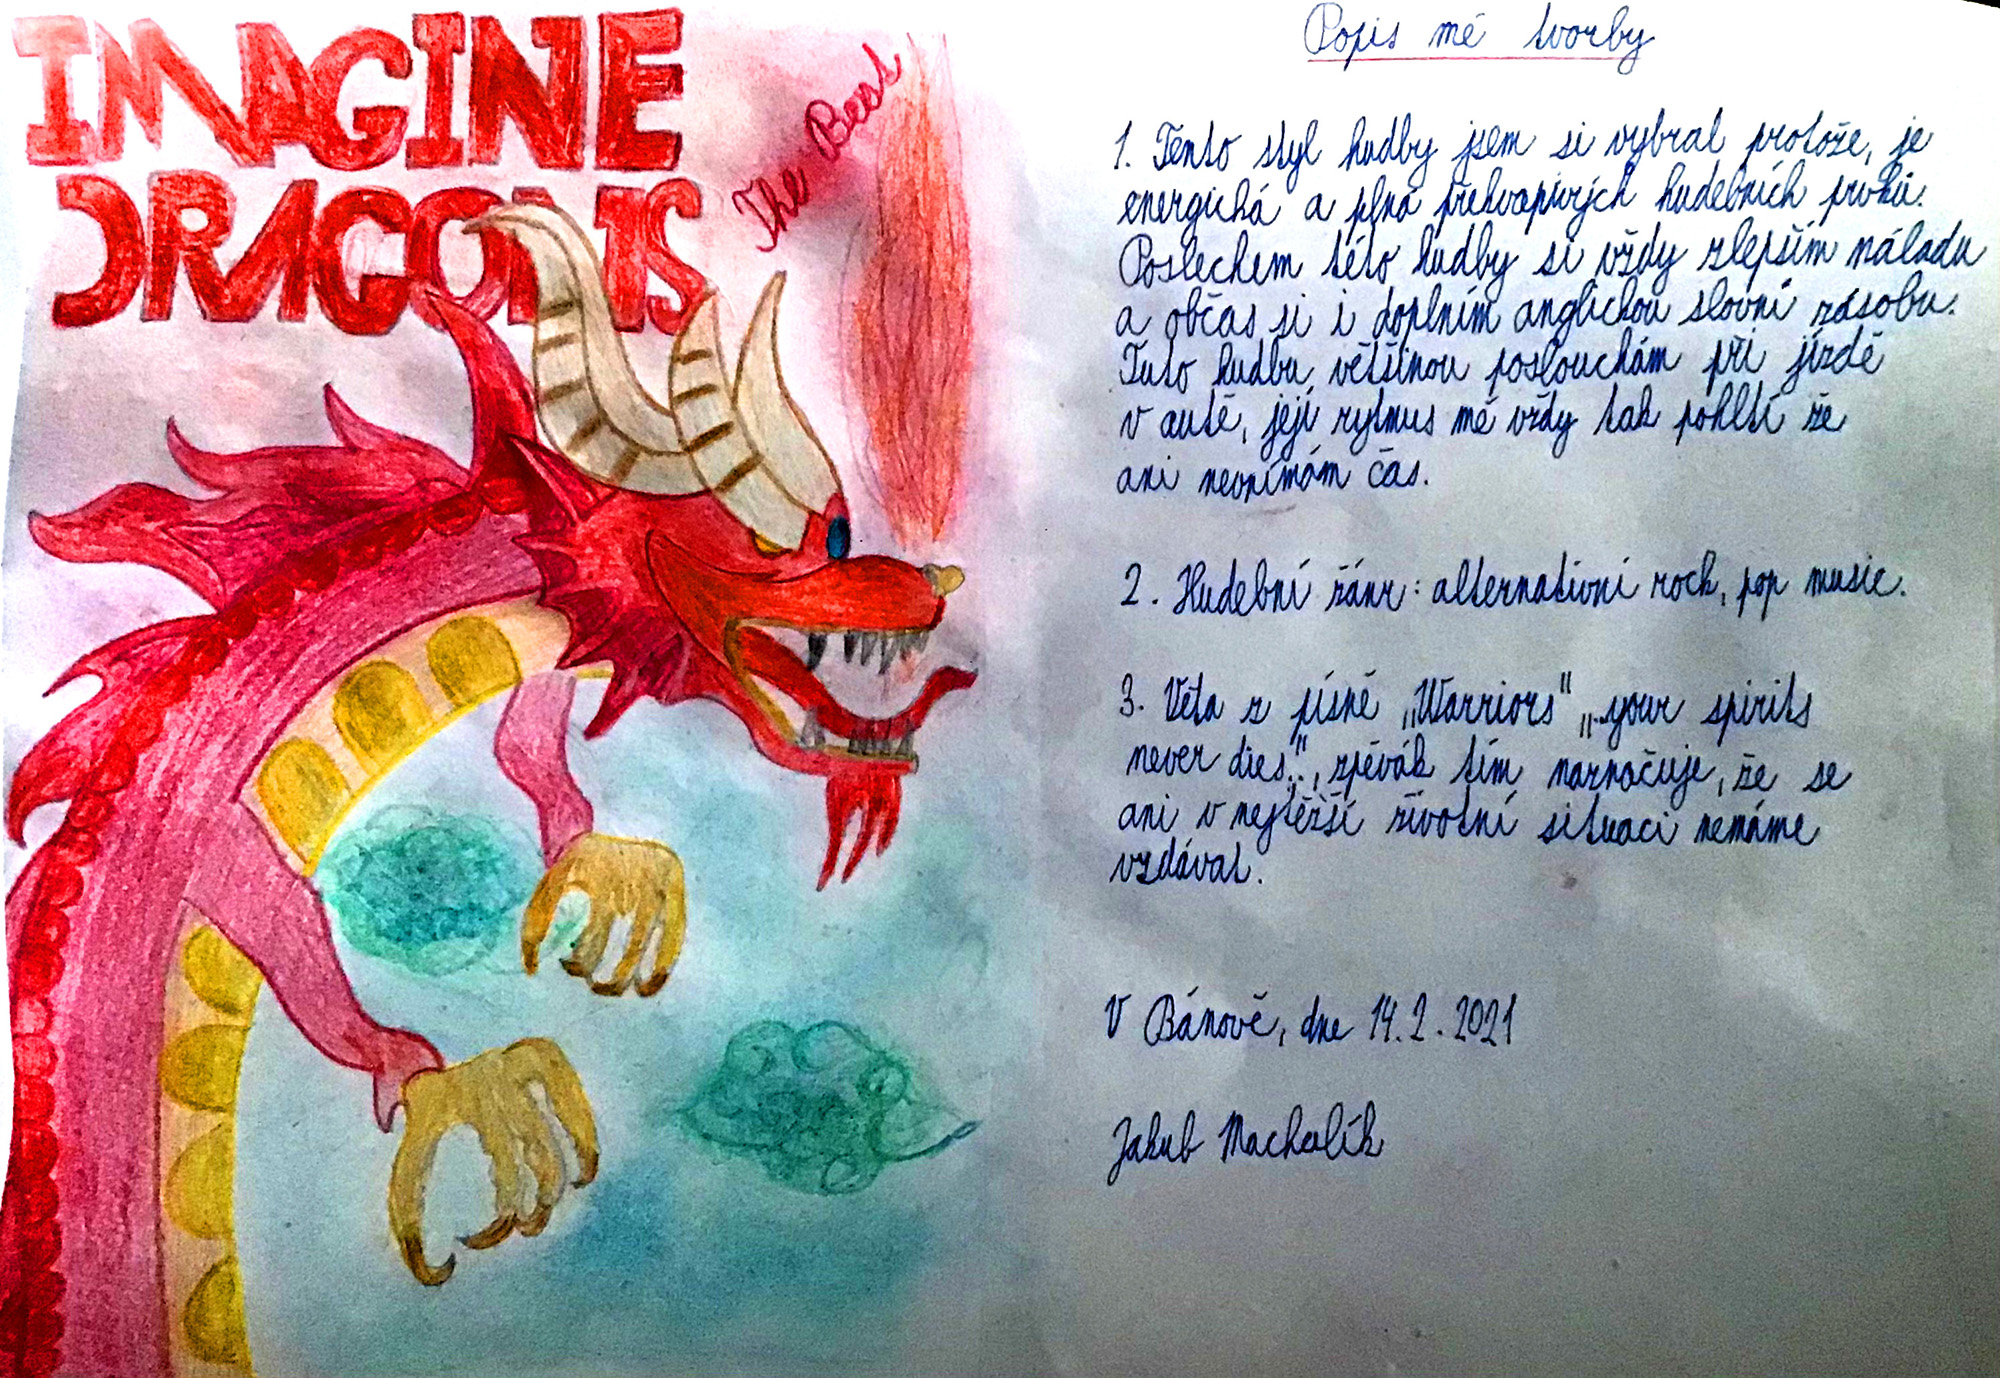 IMAGINE
DRAGONS
The Best
Popis mé tvorby
1. Tento styl hudby jsem si vybral protože, je
energická a plná překvapivých hudebních prvků.
Poslechem této hudby si vždy zlepším náladu
a občas si i doplním anglickou slovní zásobu.
Tuto hudbu většinou poslouchám při jízdě
v autě, její rytmus mě vždy tak pohltí že
ani nevnímám čas.
2. Hudební žánr: alternativní rock, pop music.
3. Věta z písně „Warriors" „..your spirits
never dies..", zpěvák tím naznačuje, že se
ani v nejtěžší životní situaci nemáme
vzdávat.
V Bánově, dne 14.2.2021
Jakub Machalík